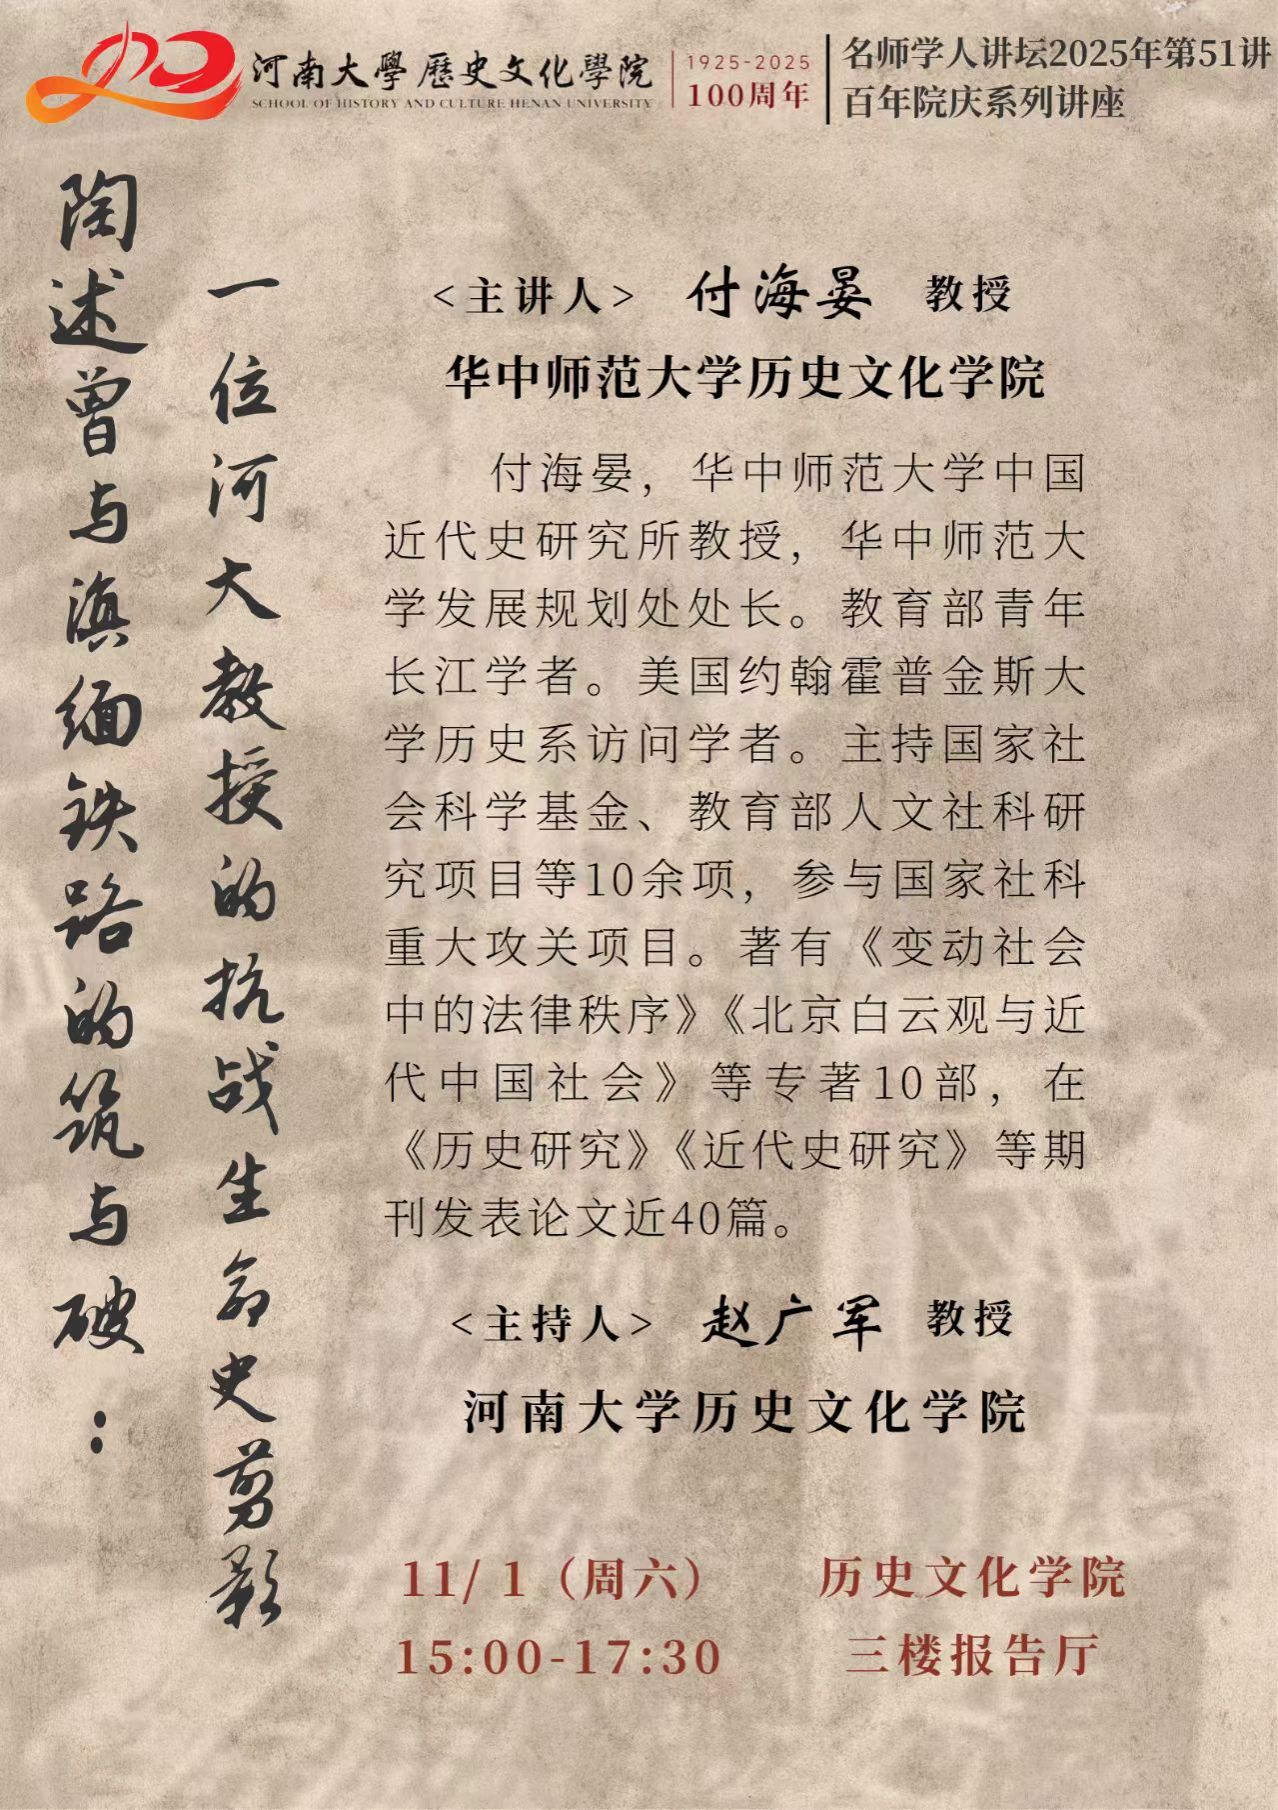 河南大學 歷史文化學院
SCHOOL OF HISTORY AND CULTURE HENAN UNIVERSITY
1925-2025
100周年
名师学人讲坛2025年第51讲
百年院庆系列讲座
陶述曾与滇缅铁路的筑与破：
一位河大教授的抗战生命史剪影
<主讲人> 付海晏 教授
华中师范大学历史文化学院
付海晏，华中师范大学中国
近代史研究所教授，华中师范大
学发展规划处处长。教育部青年
长江学者。美国约翰霍普金斯大
学历史系访问学者。主持国家社
会科学基金、教育部人文社科研
究项目等10余项，参与国家社科
重大攻关项目。著有《变动社会
中的法律秩序》《北京白云观与近
代中国社会》等专著10部，在
《历史研究》《近代史研究》等期
刊发表论文近40篇。
<主持人> 赵广军 教授
河南大学历史文化学院
11/ 1（周六）
15:00-17:30
历史文化学院
三楼报告厅